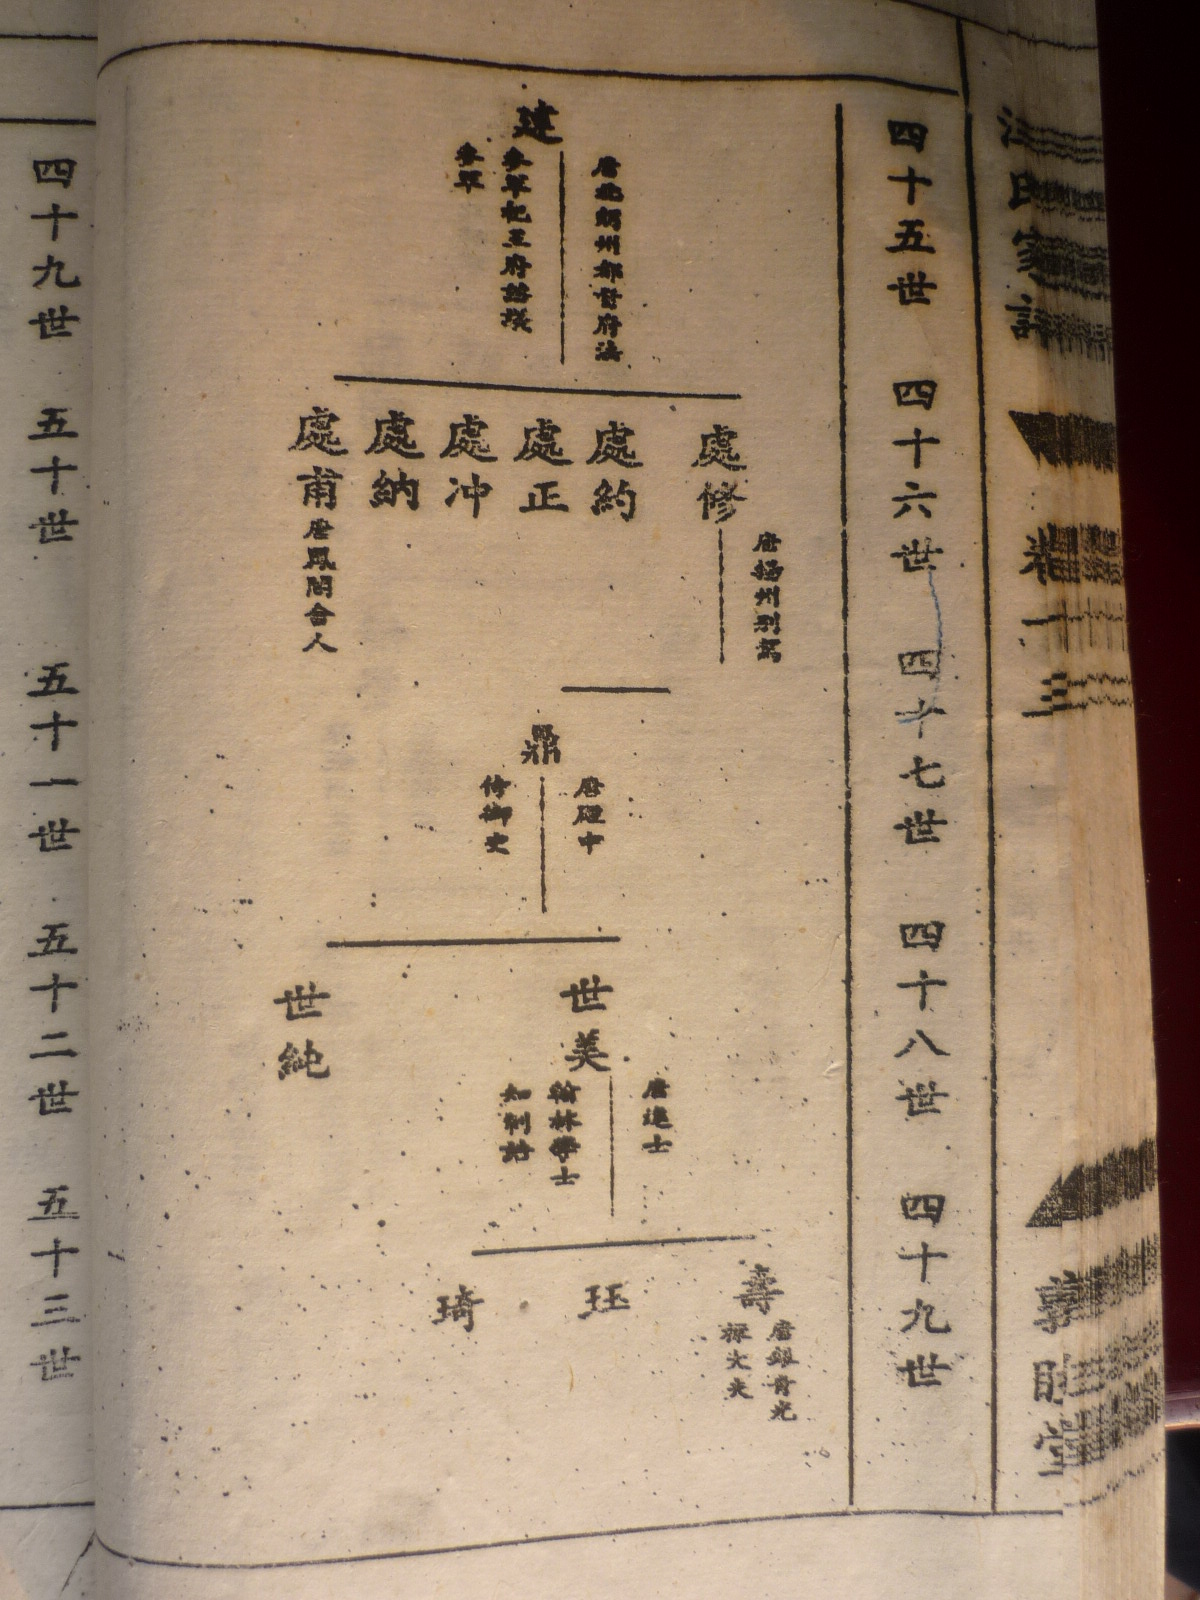 氏家
卷一
三
堂
四十五世 四十六世 四十七世 四十八世 四十九世
建
州都督府法
參軍杞王府諮議
參軍
處修
唐揚州別駕
處約
處正
處冲
處納
處甫
唐鳳閣舍人
鼎
唐殿中
侍御史
世美
唐進士
翰林學士
知制誥
世純
壽
唐銀青光
祿大夫
珏
琦
四十九世 五十世 五十一世 五十二世 五十三世